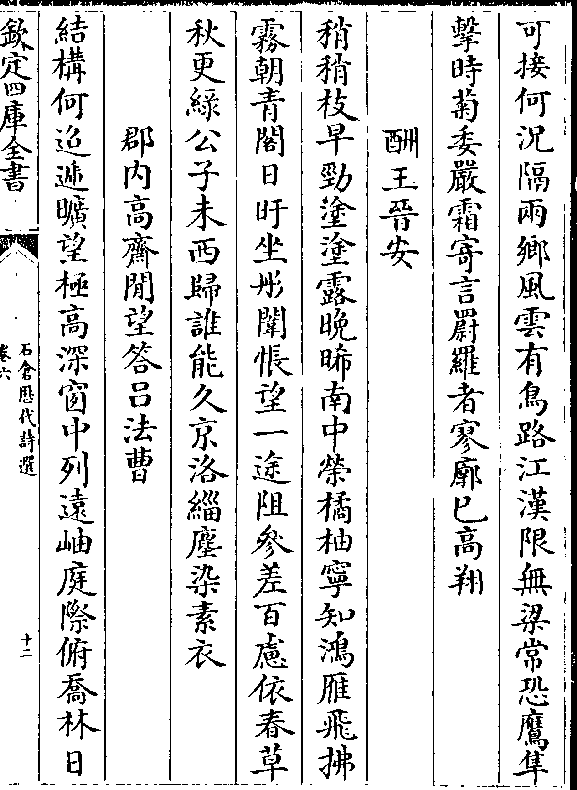 可接何況隔兩鄉風雲有鳥路江漢限無梁常恐鷹隼
擊時菊委嚴霜寄言罻羅者寥廓已高翔
酬王晉安
稍稍枝早勁塗塗露晚晞南中榮橘柚寧知鴻雁飛拂
霧朝青閣日旰坐彤闈悵望一途阻參差百慮依春草
秋更緑公子未西歸誰能久京洛緇塵染素衣
郡内高齋閒望答吕法曹
結構何迢遞曠望極高深窗中列遠岫庭際俯喬林日
欽定四庫全書
石倉歷代詩選
卷六
十二